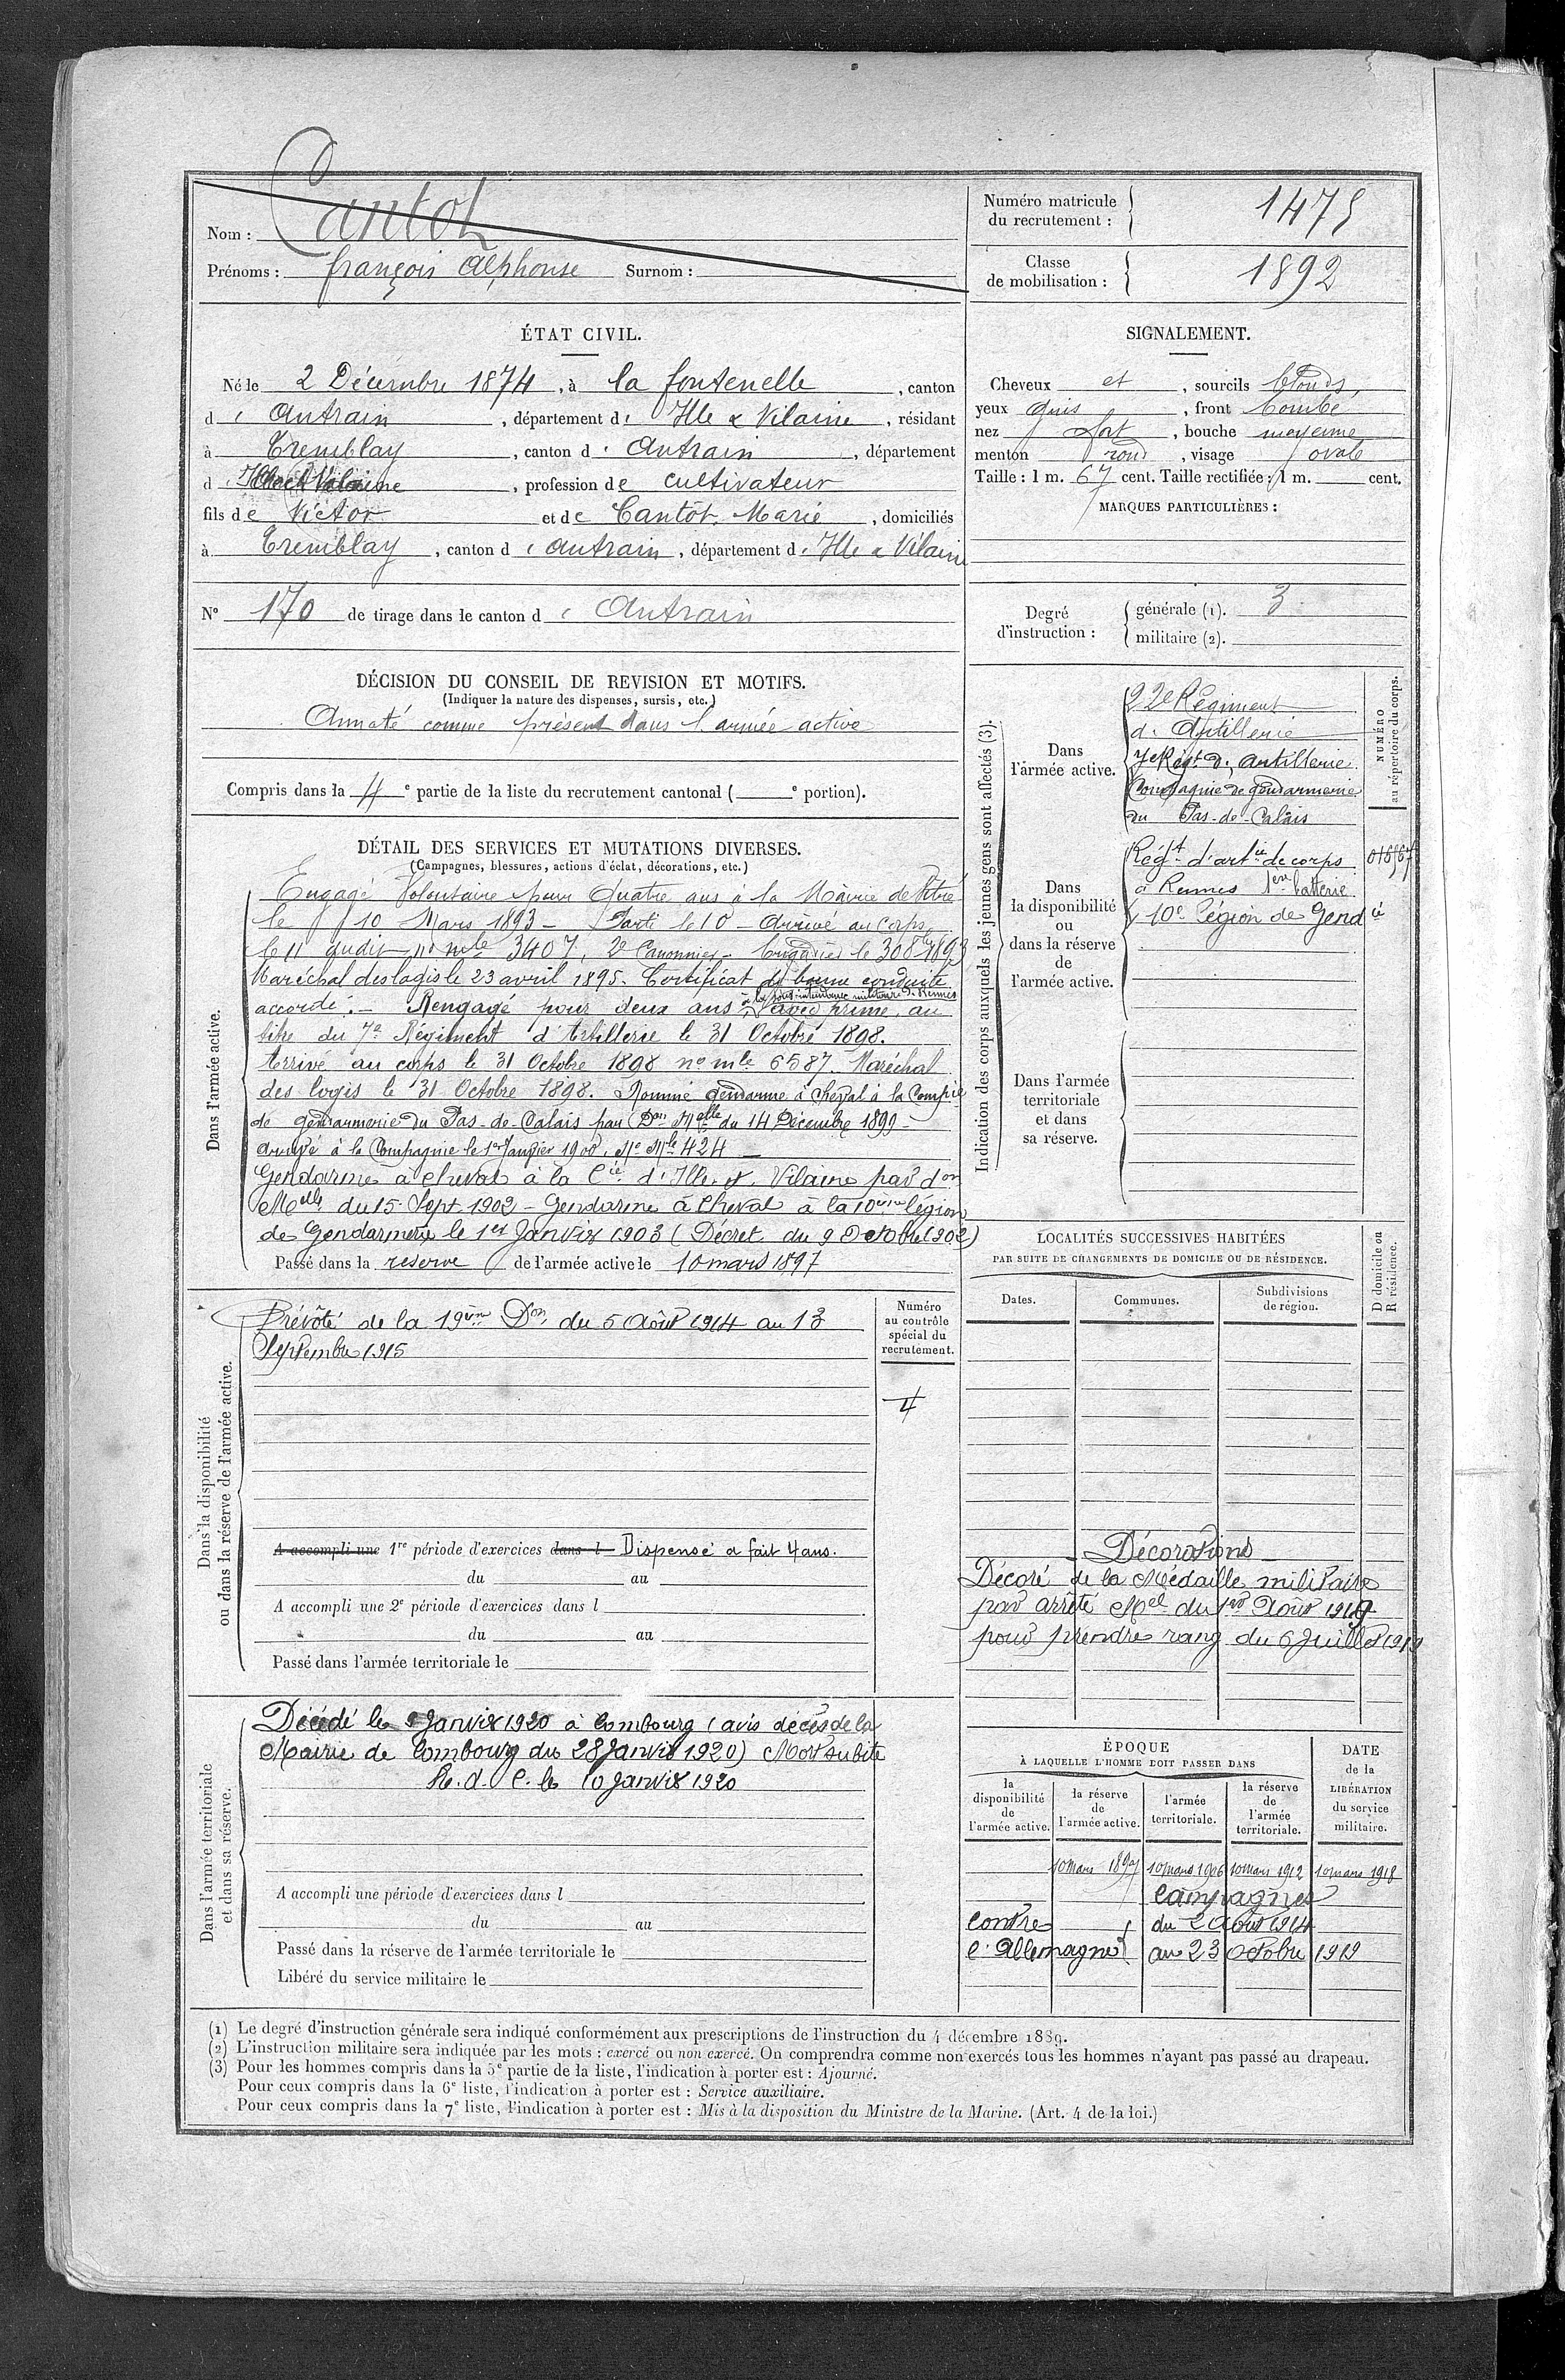 Nom : Cantot
Prénoms : françois Alphonse Surnom :
Numéro matricule du recrutement : 1475
Classe de mobilisation : 1892
ÉTAT CIVIL.
Né le 2 Décembre 1874, à la fontenelle, canton
d'Antrain, département d'Ille & Vilaine, résidant
à Tremblay, canton d'Antrain, département
d'Ille et Vilaine, profession de cultivateur
fils de Victor et de Cantôt Marie, domiciliés
à Tremblay, canton d'Antrain, département d'Ille & Vilaine
N° 170 de tirage dans le canton d'Antrain
SIGNALEMENT.
Cheveux et, sourcils blonds,
yeux gris, front bombé
nez fort, bouche moyenne
menton rond, visage ovale
Taille : 1 m. 67 cent. Taille rectifiée : 1 m. cent.
MARQUES PARTICULIÈRES :
Degré d'instruction :
générale (1). 3
militaire (2).
DÉCISION DU CONSEIL DE REVISION ET MOTIFS.
(Indiquer la nature des dispenses, sursis, etc.)
Annoté comme présent dans l'armée active
Compris dans la 4e partie de la liste du recrutement cantonal ( e portion).
DÉTAIL DES SERVICES ET MUTATIONS DIVERSES.
(Campagnes, blessures, actions d'éclat, décorations, etc.)
Dans l'armée active.
Engagé Volontaire pour Quatre ans à la Mairie de Vitré
le 10 Mars 1893 - Parti le 10 - Arrivé au corps,
le 11 dudit n° mle 3407, 2e Canonnier - brigadier le 30 8bre 1893
Maréchal des logis le 23 avril 1895. Certificat de bonne conduite
accordé. - Rengagé pour deux ans à la sous-intendance militaire de Rennes avec prime, au
titre du 7e Régiment d'Artillerie le 31 Octobre 1898.
Arrivé au corps le 31 Octobre 1898 n° mle 6587. Maréchal
des logis le 31 Octobre 1898. Nommé gendarme à cheval à la Compie
de gendarmerie du Pas-de-Calais par Don Melle du 14 Décembre 1899 -
arrivé à la Compagnie le 1er Janvier 1900, No Mle 424 -
Gendarme à cheval à la Cie d'Ille-et-Vilaine par don
Melle du 15 Sept 1902 - Gendarme à cheval à la 10ème légion
de Gendarmerie le 1er Janvier 1903 (Décret du 9 Octobre 1902)
Passé dans la réserve de l'armée active le 10 mars 1897
Indication des corps auxquels les jeunes gens sont affectés (3).
NUMÉRO au répertoire du corps.
Dans l'armée active.
22e Régiment
d'Artillerie
7e Régt d'Artillerie
Compagnie de gendarmerie
du Pas-de-Calais
Dans la disponibilité ou dans la réserve de l'armée active.
Régt d'artie de corps
à Rennes 1ère batterie
10e Légion de Gendie
Dans l'armée territoriale et dans sa réserve.
LOCALITÉS SUCCESSIVES HABITÉES
PAR SUITE DE CHANGEMENTS DE DOMICILE OU DE RÉSIDENCE.
Dates. Communes. Subdivisions de région. D domicile ou R résidence.
Dans la disponibilité ou dans la réserve de l'armée active.
Numéro au contrôle spécial du recrutement.
4
Prévôté de la 19ème Don du 5 Août 1914 au 13
Septembre 1915
A accompli une 1re période d'exercices dans l Dispensé a fait 4 ans.
du au
A accompli une 2e période d'exercices dans l
du au
Passé dans l'armée territoriale le
Décorations
Décoré de la Médaille militaire
par arrêté Mel du 1er Août 1919
pour prendre rang du 6 Juillet 1919
Dans l'armée territoriale et dans sa réserve.
Décédé le 9 Janvier 1920 à Combourg (avis décès de la
Mairie de Combourg du 28 Janvier 1920) Mort subite
R.d.C. le 10 Janvier 1920
A accompli une période d'exercices dans l
du au
Passé dans la réserve de l'armée territoriale le
Libéré du service militaire le
ÉPOQUE
À LAQUELLE L'HOMME DOIT PASSER DANS
la disponibilité de l'armée active. la réserve de l'armée active. l'armée territoriale. la réserve de l'armée territoriale.
DATE de la LIBÉRATION du service militaire.
10 mars 1897 10 mars 1906 10 mars 1912 10 mars 1918
Campagnes
contre du 2 Août 1914
l'Allemagne au 23 octobre 1919
(1) Le degré d'instruction générale sera indiqué conformément aux prescriptions de l'instruction du 4 décembre 1889.
(2) L'instruction militaire sera indiquée par les mots : exercé ou non exercé. On comprendra comme non exercés tous les hommes n'ayant pas passé au drapeau.
(3) Pour les hommes compris dans la 5e partie de la liste, l'indication à porter est : Ajourné.
Pour ceux compris dans la 6e liste, l'indication à porter est : Service auxiliaire.
Pour ceux compris dans la 7e liste, l'indication à porter est : Mis à la disposition du Ministre de la Marine. (Art. 4 de la loi.)